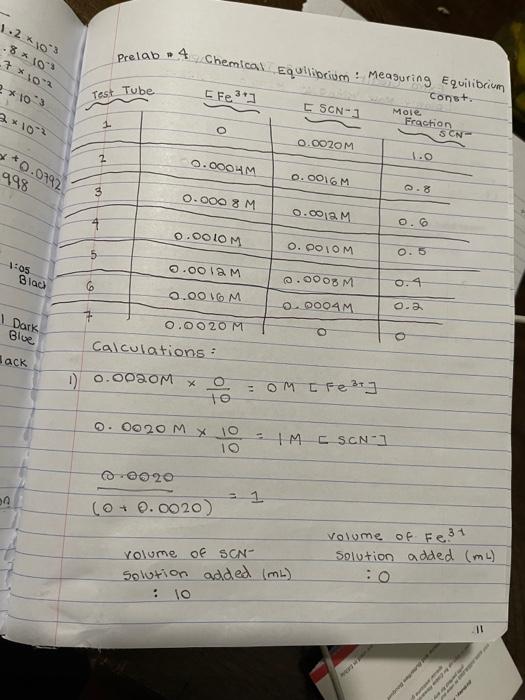 1.2 x 10-3
.8 x 10-3
.7 x 10-2
2 x 10-3
2 x 10-2
x + 0.0792
998
1:05
Black
Dark
Blue
lack
Prelab # 4 Chemical Equilibrium : Measuring Equilibrium
const.
Test Tube [Fe3+] [SCN-] Mole
Fraction
SCN-
1 0 0.0020M 1.0
2 0.0004M 0.0016M 0.8
3 0.0008 M 0.0012M 0.6
4 0.0010 M 0.0010M 0.5
5 0.0012M 0.0008M 0.4
6 0.0016 M 0.0004M 0.2
7 0.0020 M 0 0
Calculations :
1) 0.0020M x 0/10 = 0 M [Fe3+]
0.0020 M x 10/10 = 1M [SCN-]
0.0020
(0 + 0.0020) = 1
volume of SCN-
solution added (mL)
: 10
volume of Fe3+
solution added (mL)
: 0
11